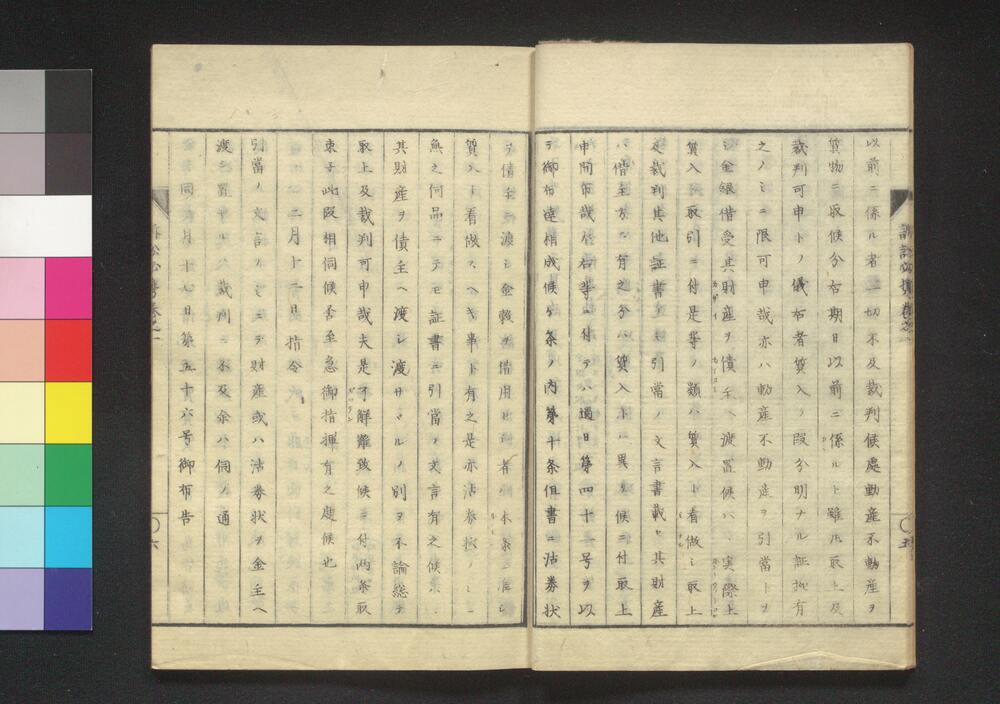 以前ニ係ル者一切不及裁判候處動産不動産ヲ
質物ニ取候分右期日以前ニ係ルト雖𪜈取上及
裁判可申トノ儀右者質入ノ段分明ナル証拠有
之ノミニ限可申哉亦ハ動産不動産ヲ引當トヲ
シ金銀借受其財産ヲ債主ヘ渡置候ハ実際上
質入ノ取引ニ付是等ノ類ハ質入ト看做シ取上
及裁判其他証書ニ引當ノ文言書載セ其財産
ハ借主方ニ有之分ハ質入トハ異リ候ニ付取上
申間布哉右等ニ付テハ過日第四十三号ヲ以
テ御布達相成候ケ条ノ内第十条但書ニ沽券状
ヲ債主ニ渡シ金穀ヲ借用
質入ト看做スヘキ事ト有之是亦沽券状ノミニ
無之何品ニテモ証書ニ引當ノ文言有之候
其財産ヲ債主ヘ渡シ渡サヽルノ別ヲ不論総テ
取上及裁判可申哉夫是了解難致候ニ付両条取
束子此段相伺候条至急御指揮有之度候也
二月十二日指令
引當ノ文言ノミニテ財産或ハ沽券状ヲ金主ヘ
渡シ置サルハ裁判ニ不及余ハ伺ノ通
同年月十七日第五十六号御布告